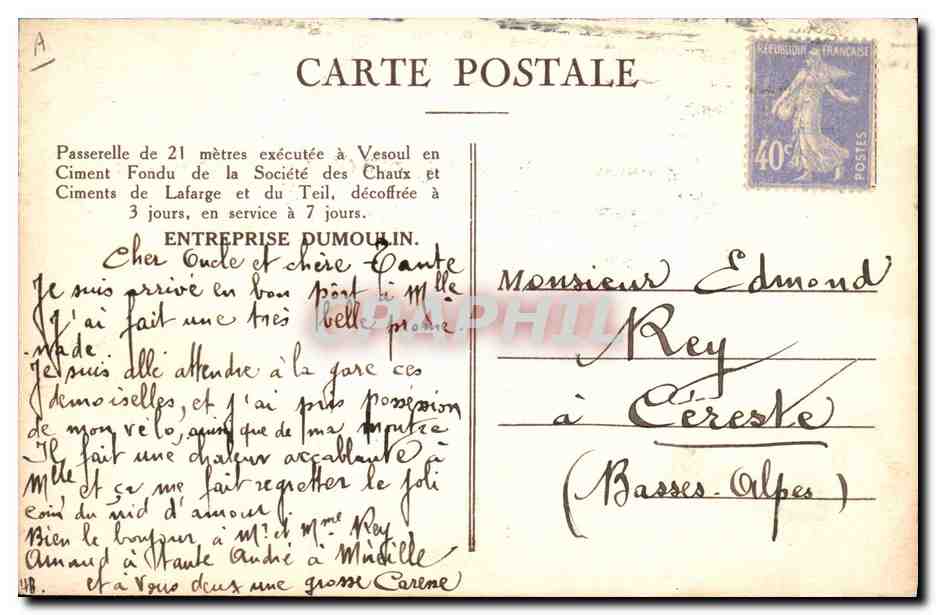 A
CARTE POSTALE
RÉPUBLIQUE FRANÇAISE
40c
POSTES
Passerelle de 21 mètres exécutée à Vesoul en
Ciment Fondu de la Société des Chaux et
Ciments de Lafarge et du Teil, décoffrée à
3 jours, en service à 7 jours.
ENTREPRISE DUMOULIN.
Cher Oncle et chère Tante
Je suis arrivé en bon pôrt à Mlle
J'ai fait une très belle prome-
nade.
Je suis allé attendre à la gare ces
demoiselles, et j'ai pris posséssion
de mon vélo, ainsi que de ma montre
Il fait une chaleur accablante à
Mlle, et ça me fait regretter le joli
coin du nid d'amour.
Bien le bonjour à Mr. et Mme Rey
Arnaud à tante André à Mireille
et à vous deux une grosse Caresse
Monsieur Edmond
Rey
à Céreste
(Basses-Alpes)
CPAPHIL